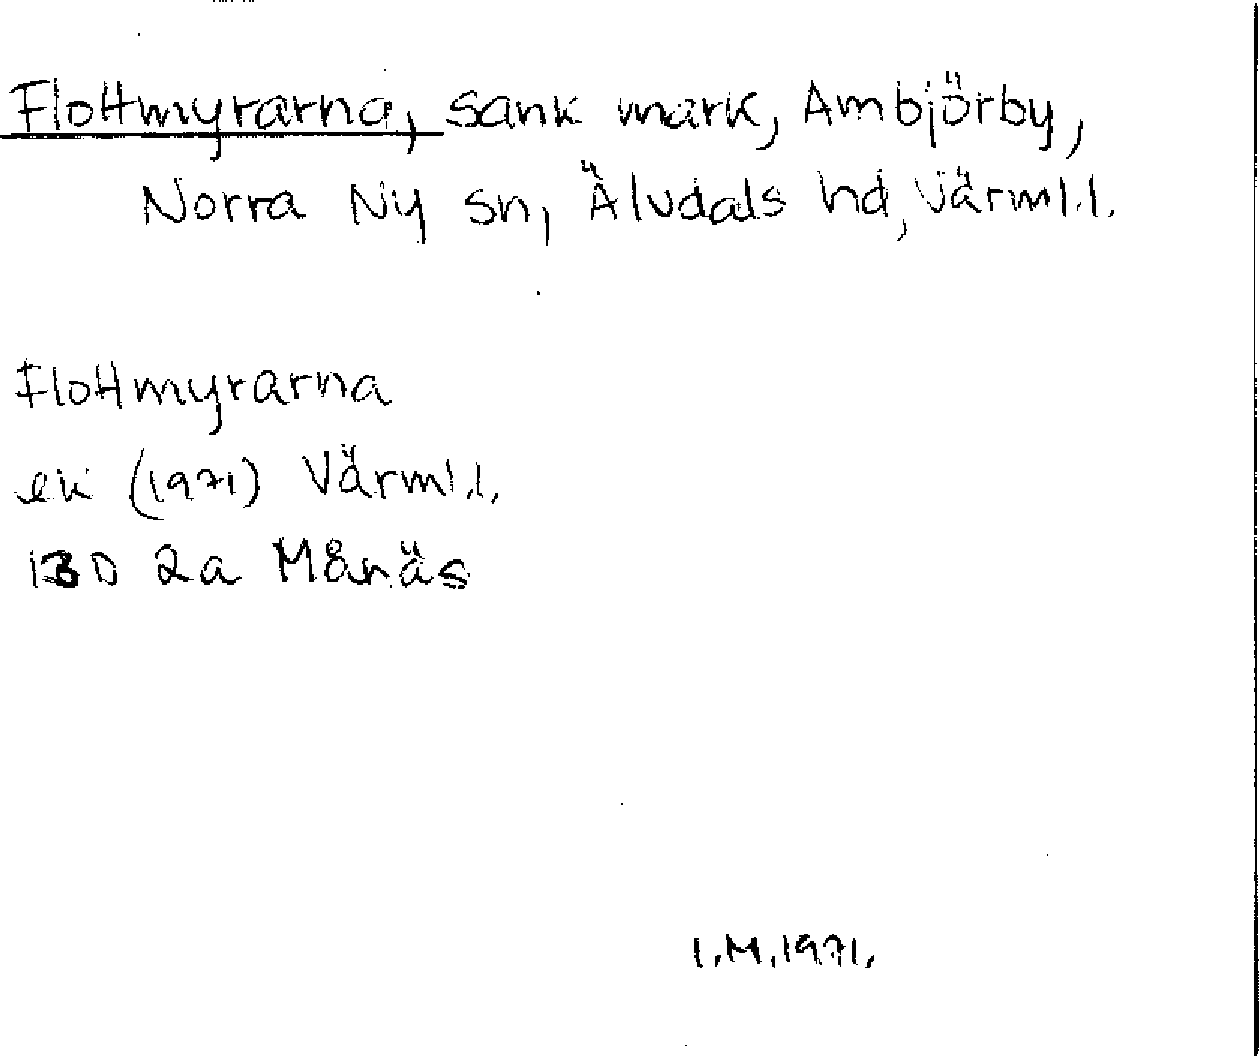 Flottmyrarna, sank mark, Ambjörby,
Norra Ny sn, Älvdals hd, Värml.l.
Flottmyrarna
ek (1971) Värml.l.
13D 2a Månäs
I.M.1971.